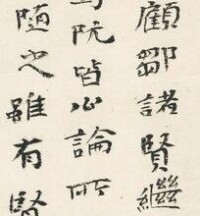 顧鄒諸賢繼
阮皆必論所
隨之雖有賢